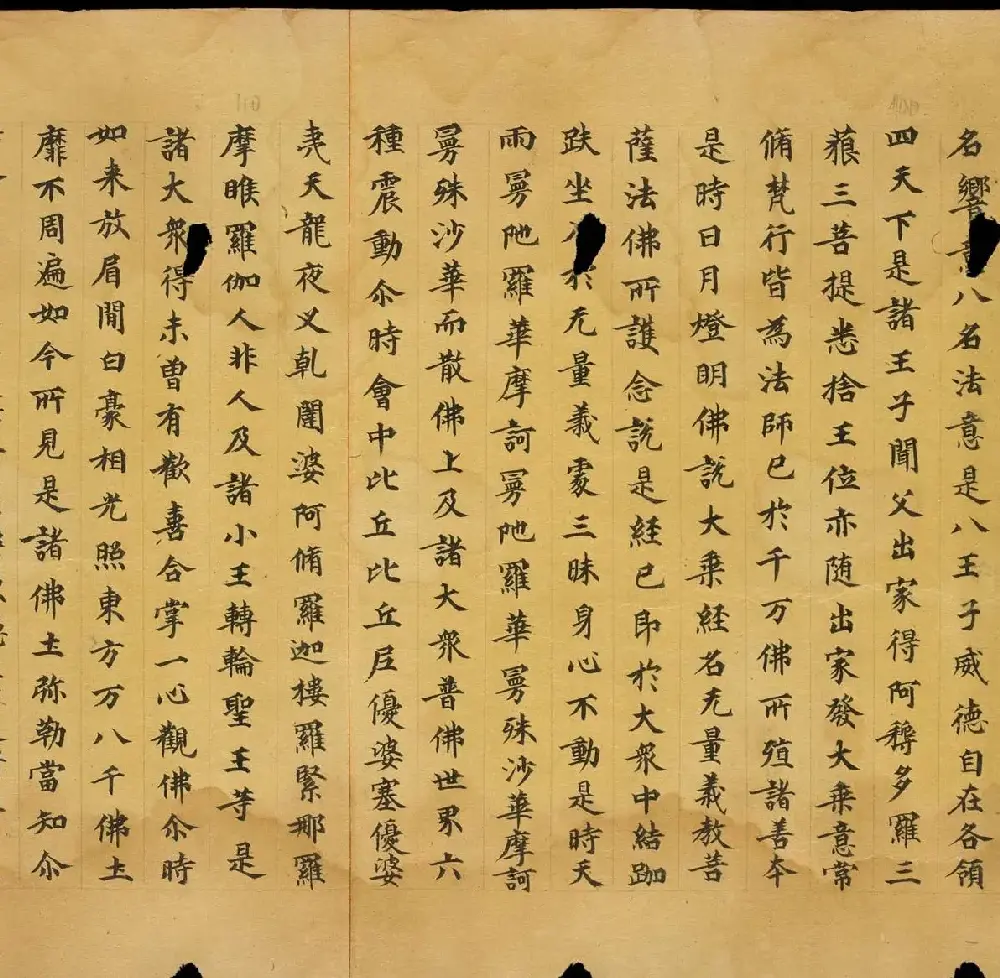 名響意八名法意是八王子威德自在各領
四天下是諸王子聞父出家得阿耨多羅三
藐三菩提悉捨王位亦随出家發大乗意常
脩梵行皆為法師已於千万佛所殖諸善夲
是時日月燈明佛說大乗経名无量義教菩
薩法佛所護念說是経已即於大衆中結跏
趺坐於无量義䖏三昧身心不動是時天
雨曼陁羅華摩訶曼陁羅華曼殊沙華摩訶
曼殊沙華而散佛上及諸大衆普佛世界六
種震動尒時會中比丘比丘尼優婆塞優婆
夷天龍夜叉乹闥婆阿脩羅迦樓羅緊那羅
摩睺羅伽人非人及諸小王轉輪聖王等是
諸大衆得未曽有歡喜合掌一心觀佛尒時
如来放眉間白豪相光照東方万八千佛土
靡不周遍如今所見是諸佛土弥勒當知尒